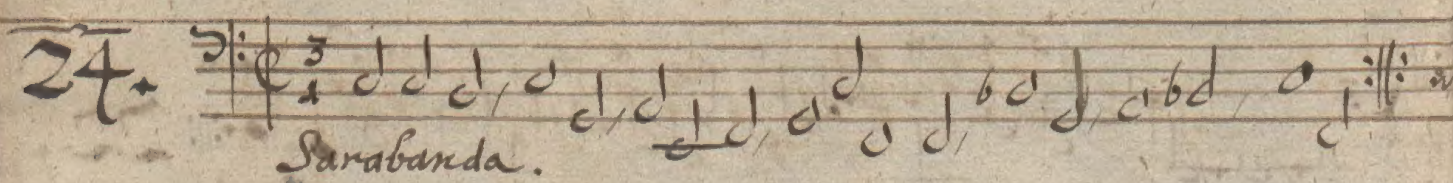 24. 3
1
Sarabanda.